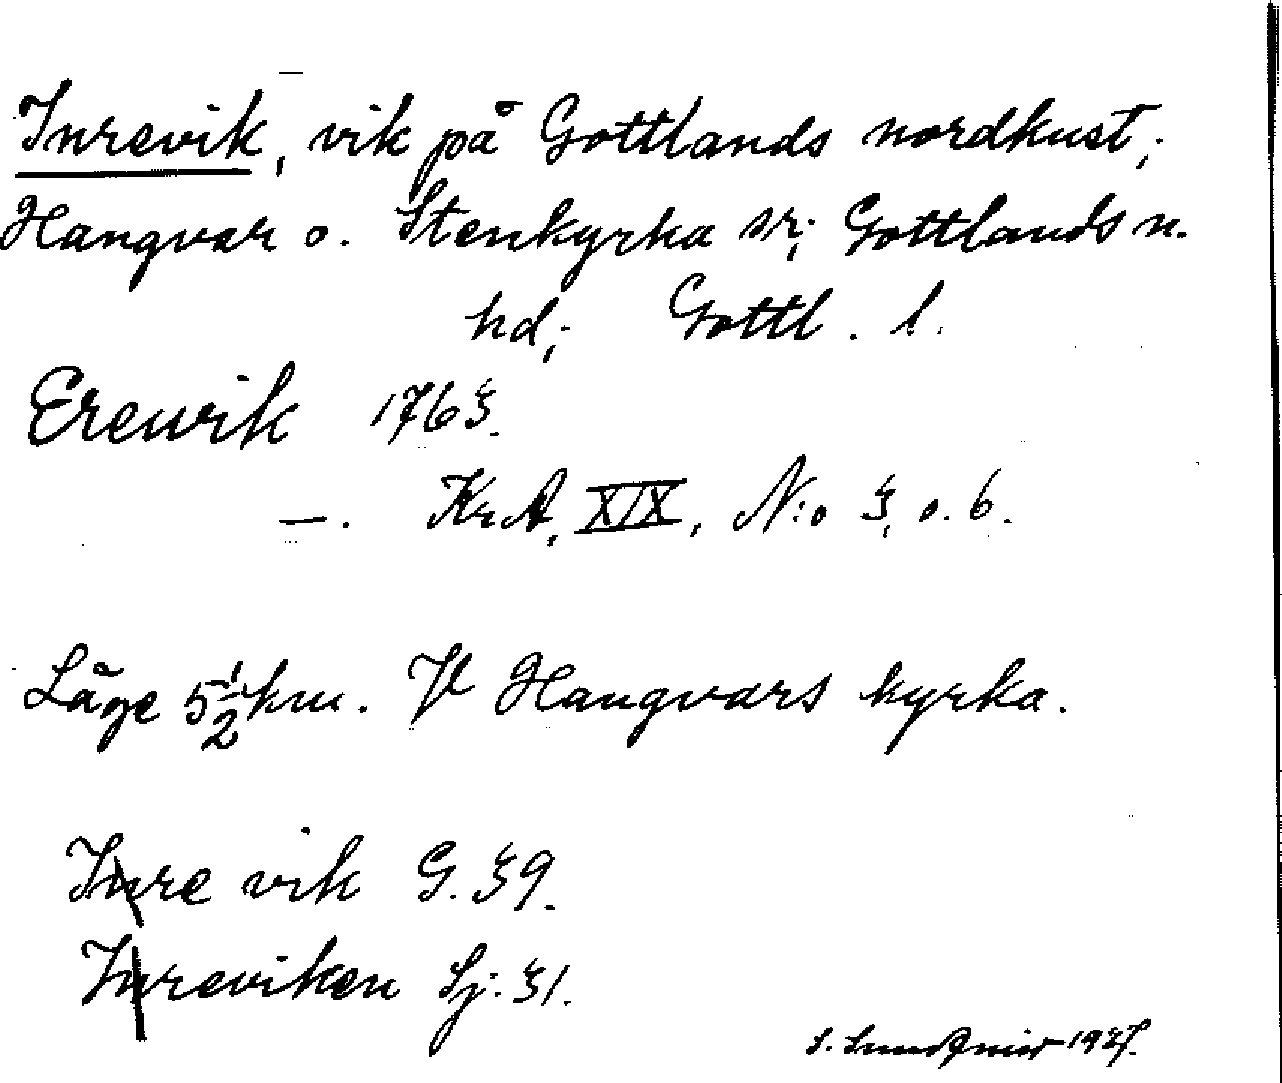 Inrevik, vik på Gottlands nordkust;
Hangvar o. Stenkyrka sr; Gottlands n.
hd; Gottl. l.
Erewik 1763.
—. KrA, XIX, N:o 3, o. 6.
Läge 5 1/2 km. V Hangvars kyrka.
Inre vik G. 39.
Inreviken Sj. 31.
S.